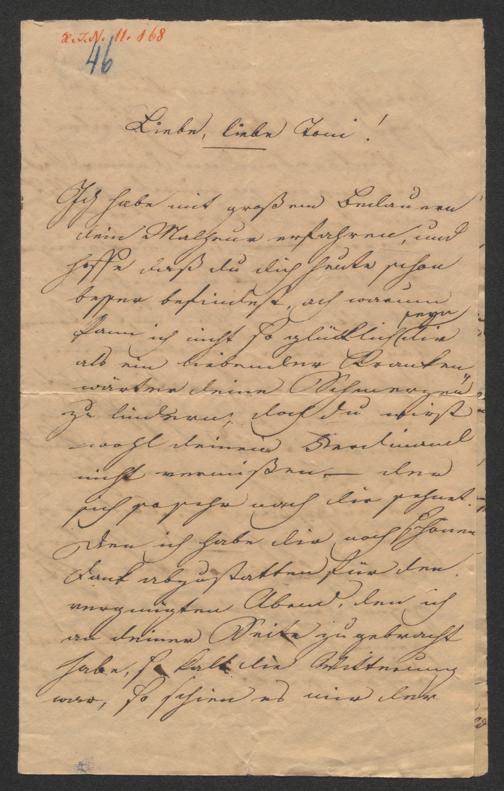 H.I.N. 11.168
46
Liebe, liebe Toni!
Ich habe mit großem Bedauern
dein Malheur erfahren, und
hoffe daß du dich heute schon
besser befindest, ach warum
kann ich nicht so glücklich seyn dir
als ein liebender Kranken
wärter deine Schmerzen
zu lindern, doch du wirst
wohl deinen Ferdinand
nicht vermißen – der
sich so sehr nach dir sehnet.
Den ich habe dir noch schönen
Dank abzustatten für den
vergnügten Abend, den ich
an deiner Seite zugebracht
habe, so kalt die Witterung
war, so schien es mir der